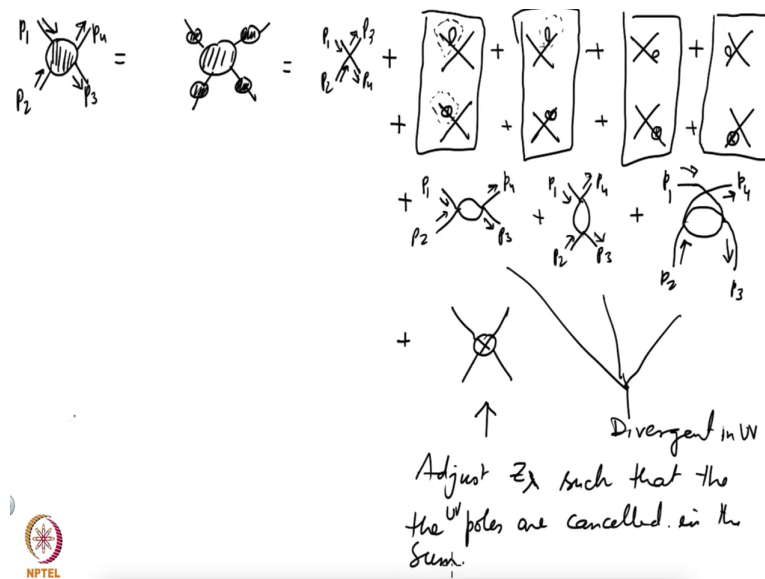 P₁ P₄ = = P₁ P₃ + + + +
P₂ P₃ P₂ P₄
+ + + +
+ P₁ P₄ + P₁ P₄ + P₁ P₄
P₂ P₃ P₂ P₃ P₂ P₃
+
Divergent in UV
Adjust Z_λ such that the
the UV poles are cancelled. in the
Sum.
NPTEL